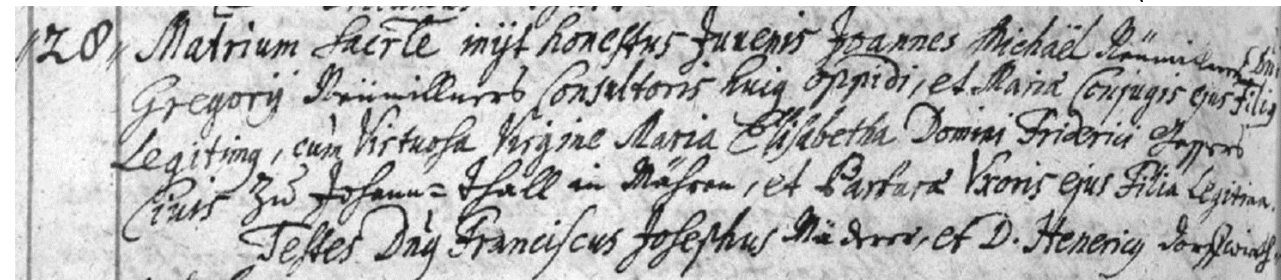 28 Matrium Sacrãle inijt honestus Juvenis Joannes Michaël Neümillner
Gregorij Neümillners Consultoris huig oppidi, et Mariæ Conjugis ejus Filig
Legitimg, cùm Virtuosa Virgine Maria Elisabetha Domini Friderici
Civis Zu Johann=thall in Mähren, et Barbaræ Vxoris ejus Filia Legitima.
Testes Dñg Franciscus Josephus et D. Henericg